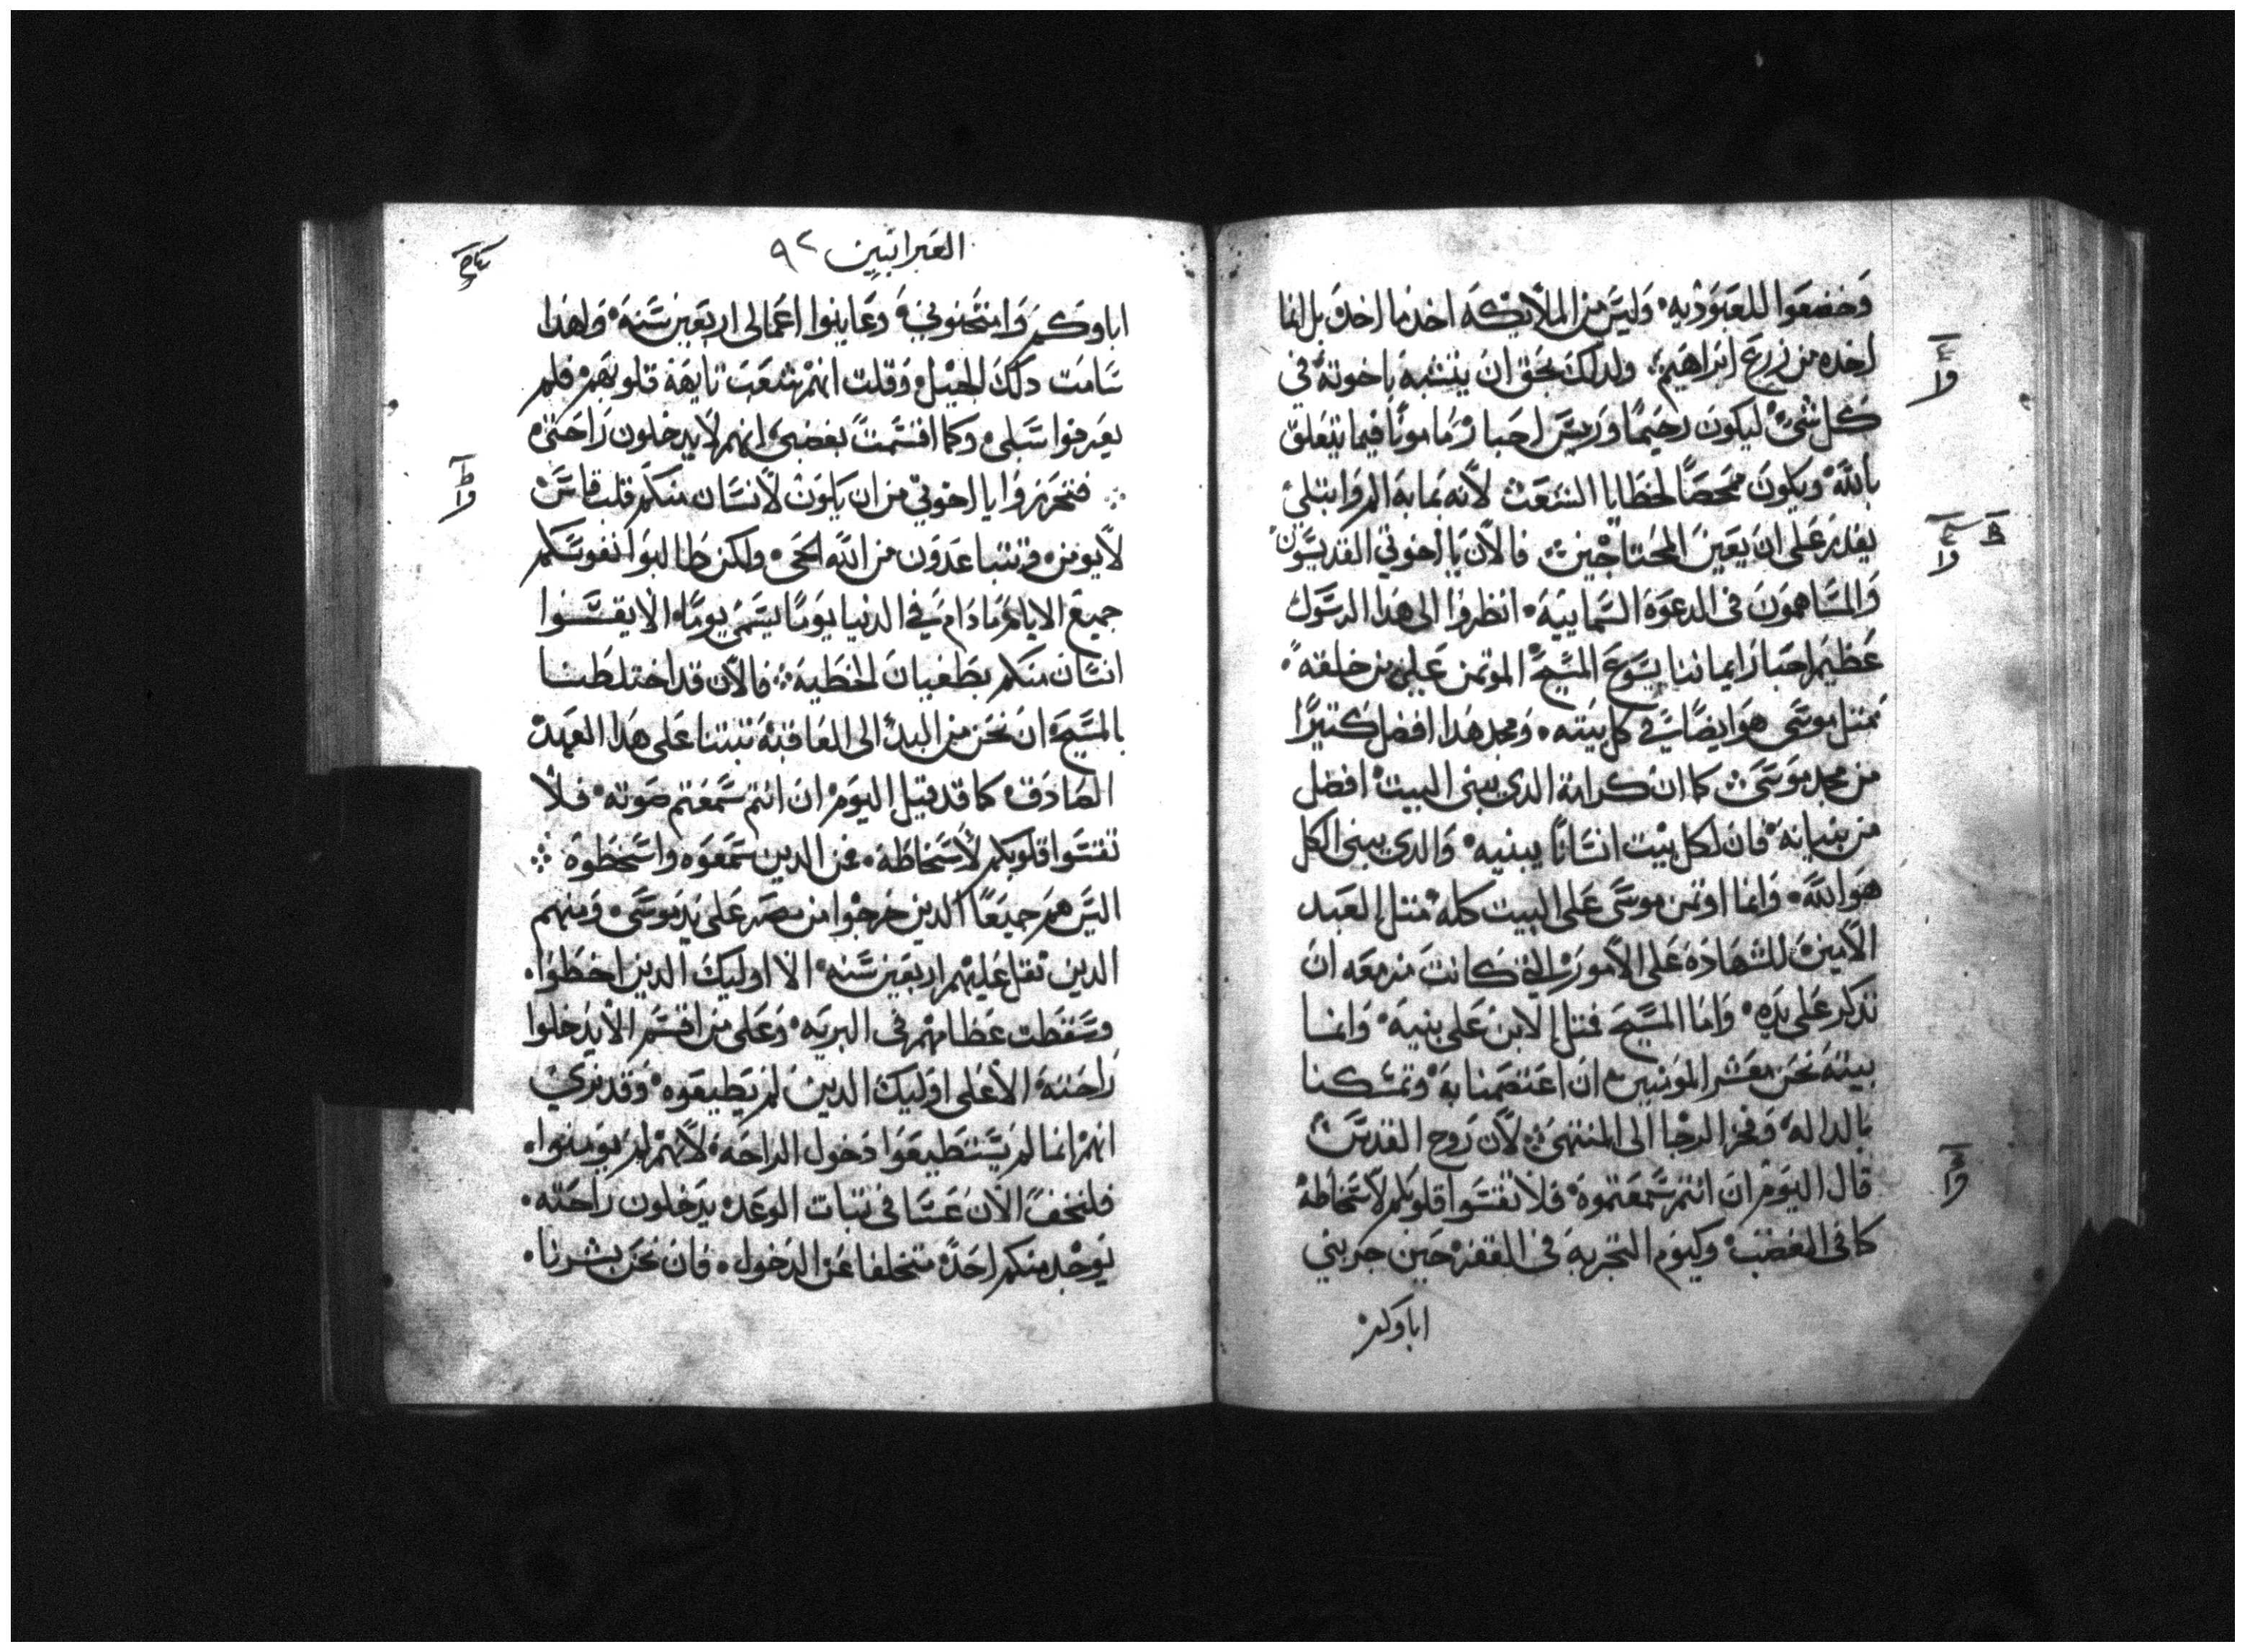 وخضعوا للعبوديه وليس من الملايكه اخذ ما اخذ بل انما
اخذه من زرع ابراهيم ولدلك بحق ان يتشبه باخوته في
كل شي ليكون رحيمًا وريس احبار مامونًا فيما يتعلق
بالله ويكون ممحصًا لخطايا الشعب لانه بما به الم وابتلي
يقدر على ان يعين المحتاجين فالان يا اخوتي القديسون
والمساهمون في الدعوة السماييه انظروا الى هذا الرسول
عظيم احبار ايماننا يسوع المسيح الموتمن على من خلقه
كمتل موسى هو ايضًا في كل بيته ومجد هذا افضل كتيرًا
من مجد موسى كما ان كرامة الدي يبني البيت افضل
من بنيانه فان لكل بيت انسانًا يبنيه والدي يبني الكل
هو الله وانما اوتمن موسى على البيت كله متل العبد
الامين للشهادة على الامور التي كانت مزمعه ان
تدكر على يده واما المسيح فمتل الابن على بنيه وانما
بيته نحن معشر المومنين ان اعتصمنا به وتمسكنا
بالداله وفخر الرجا الى المنتهى لان روح القدس
قال اليوم ان انتم سمعتموه فلا تقسوا قلوبكم لاسخاطه
كما في الغضب وكيوم التجربة في القفز حين جربني
اباوكم
العبرانيين ٩٢
اباوكم وامتحنوني وعاينوا اعمالي اربعين سنه ولهدا
سامت دلك الجيل وقلت انهم شعب تايهة قلوبهم فلم
يعرفوا سبلي وكما اقسمت بغضبي انهم لا يدخلون راحتي
فتحرزوا يا اخوتي من ان يكون لانسان منكم قلب قاس
لا يومن فتتباعدون من الله الحي ولكن طالبوا نفوسكم
جميع الايام ما دام في الدنيا يومًا يسمى يومًا الا يقسوا
انسان منكم بطغيان الخطيه فالان قد اختلطنا
بالمسيح ان نحن من البدا الى العاقبة تبتنا على هدا العهد
الصادق كما قد قيل اليوم ان انتم سمعتم صوته فلا
تقسوا قلوبكم لاسخاطه فمن الدين سمعوه واسخطوه
اليس هم جميعًا الدين خرجوا من مصر على يد موسى ومنهم
الدين تقل عليهم اربعين سنه الا اوليك الدين اخطوا
وسقطت عظامهم في البريه وعلى من اقسم الا يدخلوا
راحته الا على اوليك الدين لم يطيعوه وقد نري
انهم انما لم يستطيعوا دخول الراحة لانهم لم يومنوا
فلنخف الان عسا في تبات الوعد بدخلون راحته
يوجد منكم احد متخلفا عن الدخول فان نحن بشرنا